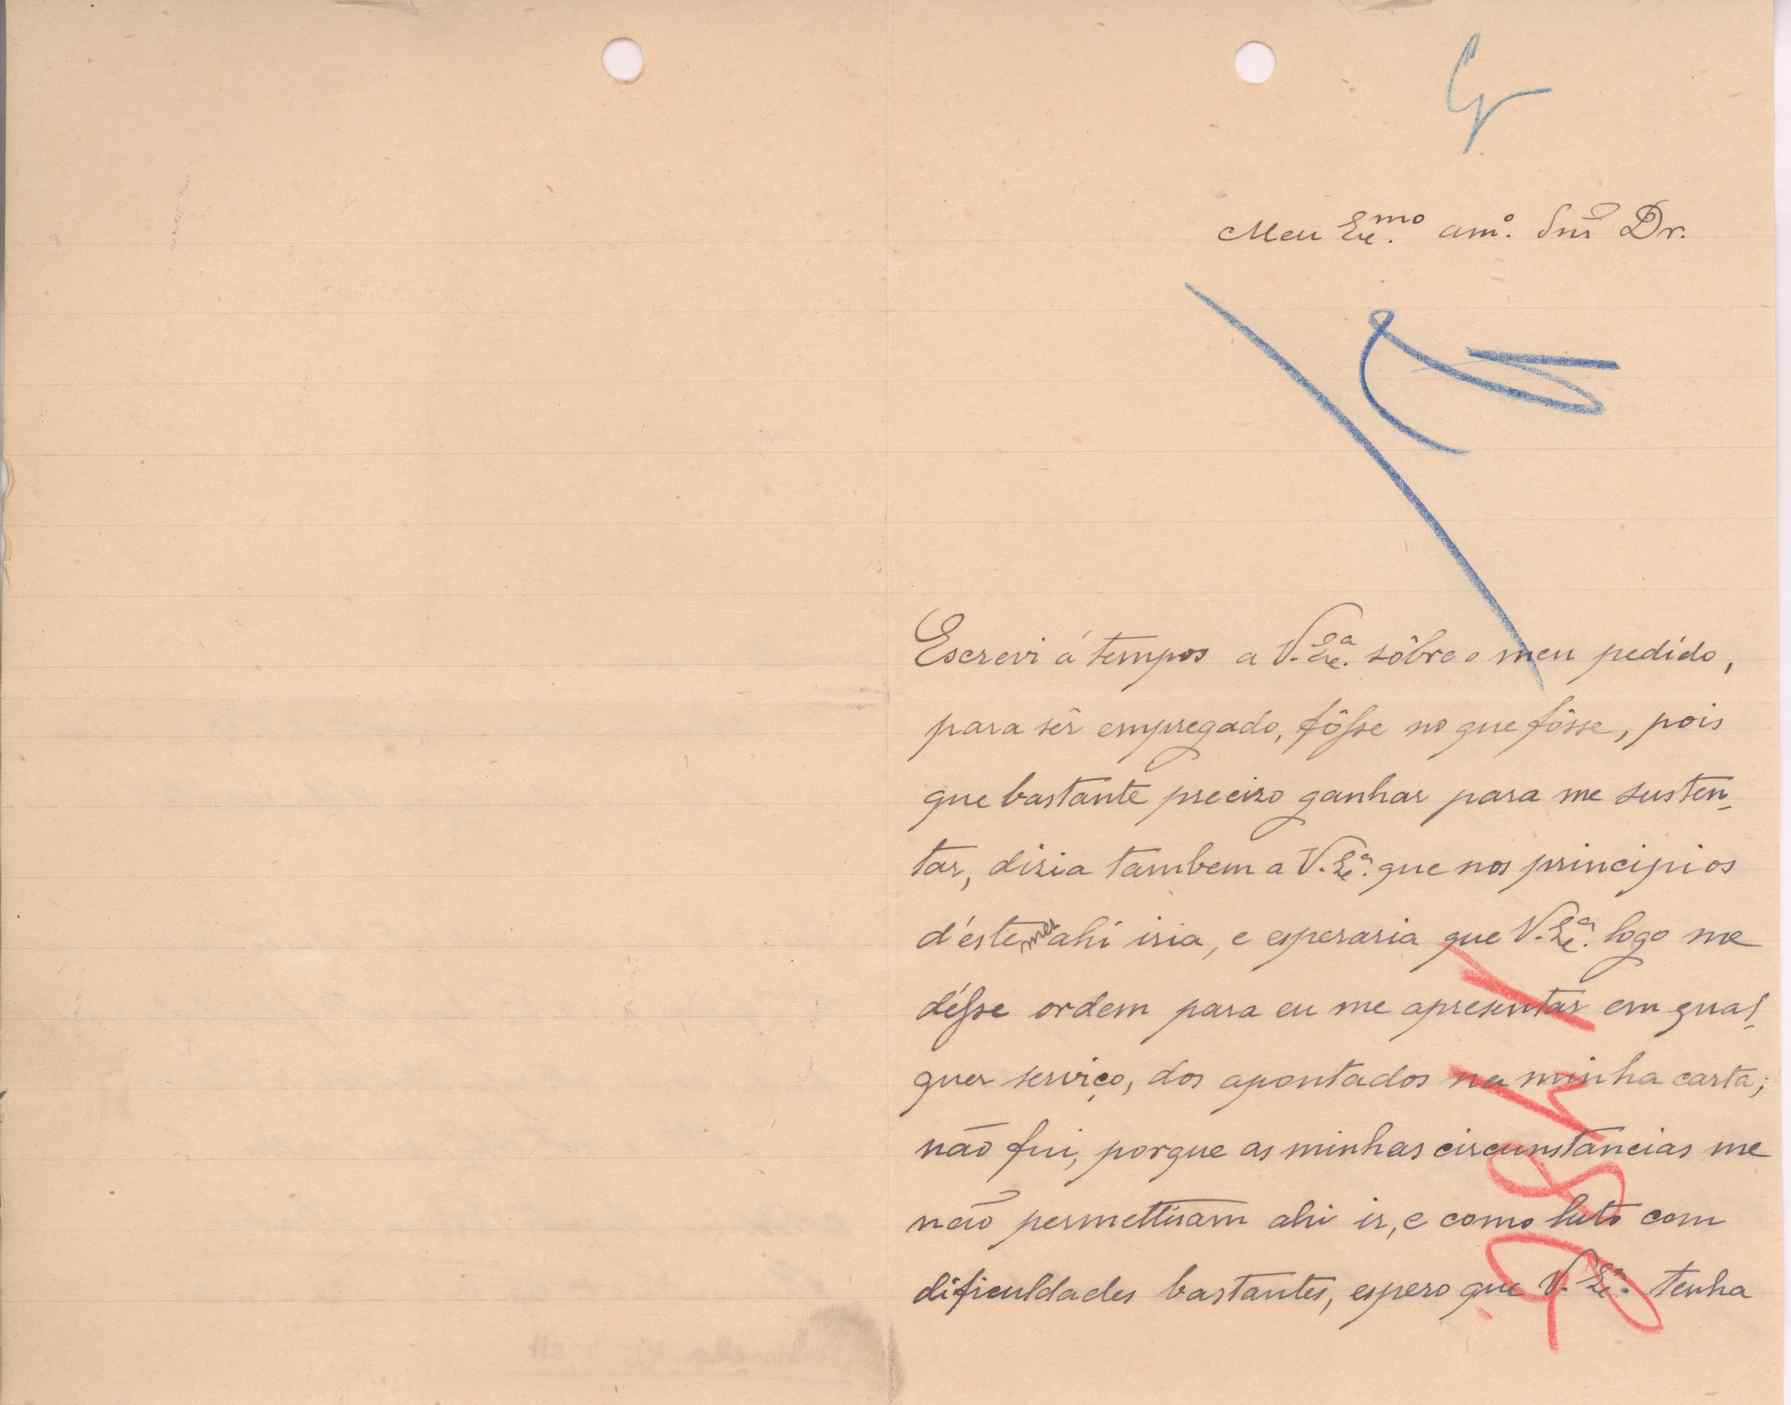 Meu Exc.mo am.o Snr Dr.
Escrevi á tempos a V. Exc.a sôbre o meu pedido,
para sêr empregado, fôsse no que fôsse, pois
que bastante preciso ganhar para me susten-
tar, dizia tambem a V. Exc.a que nos principios
d'éste mez ahi iria, e esperaria que V. Exc.a logo me
désse ordem para eu me apresentar em qual-
quer serviço, dos apontados na minha carta;
não fui, porque as minhas circumstancias me
não permettiram ahi ir, e como luto com
dificuldades bastantes, espero que V. Exc.a tenha